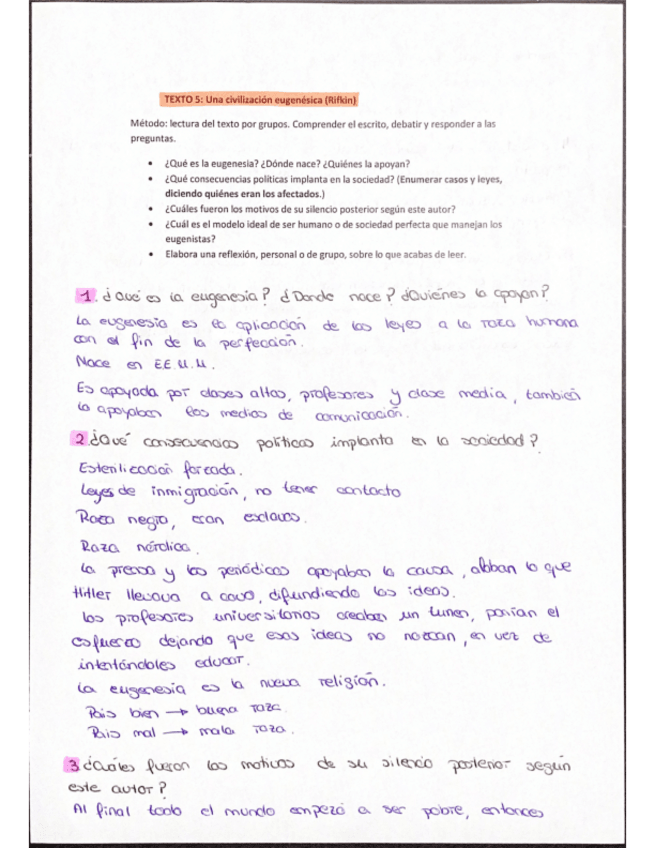 TEXTO 5: Una civilización eugenésica (Rifkin)
Método: lectura del texto por grupos. Comprender el escrito, debatir y responder a las
preguntas.
• ¿Qué es la eugenesia? ¿Dónde nace? ¿Quiénes la apoyan?
• ¿Qué consecuencias políticas implanta en la sociedad? (Enumerar casos y leyes,
diciendo quiénes eran los afectados.)
• ¿Cuáles fueron los motivos de su silencio posterior según este autor?
• ¿Cuál es el modelo ideal de ser humano o de sociedad perfecta que manejan los
eugenistas?
• Elabora una reflexión, personal o de grupo, sobre lo que acabas de leer.
1. ¿Qué es la eugenesia? ¿Donde nace? ¿Quiénes la apoyan?
La eugenesia es la aplicación de las leyes a la raza humana
con el fin de la perfección.
Nace en EE.U.U.
Es apoyada por clases altas, profesores y clase media, también
la apoyaban los medios de comunicación.
2 ¿Qué consecuencias políticas implanta en la sociedad?
Esterilización forzada.
Leyes de inmigración, no tener contacto
Raza negra, eran esclavos.
Raza nórdica.
La prensa y los periódicos apoyaban la causa, lo que
Hitler llevava a cavo, difundiendo las ideas.
Los profesores universitarios creaban un, ponían el
esfuerzo dejando que esas ideas no nozcan, en vez de
intentándoles educar.
La eugenesia es la nueva religión.
País bien → buena raza.
País mal → mala raza.
3 ¿Cuáles fueron los motivos de su silencio posterior según
este autor?
Al final todo el mundo empezó a ser pobre, entonces